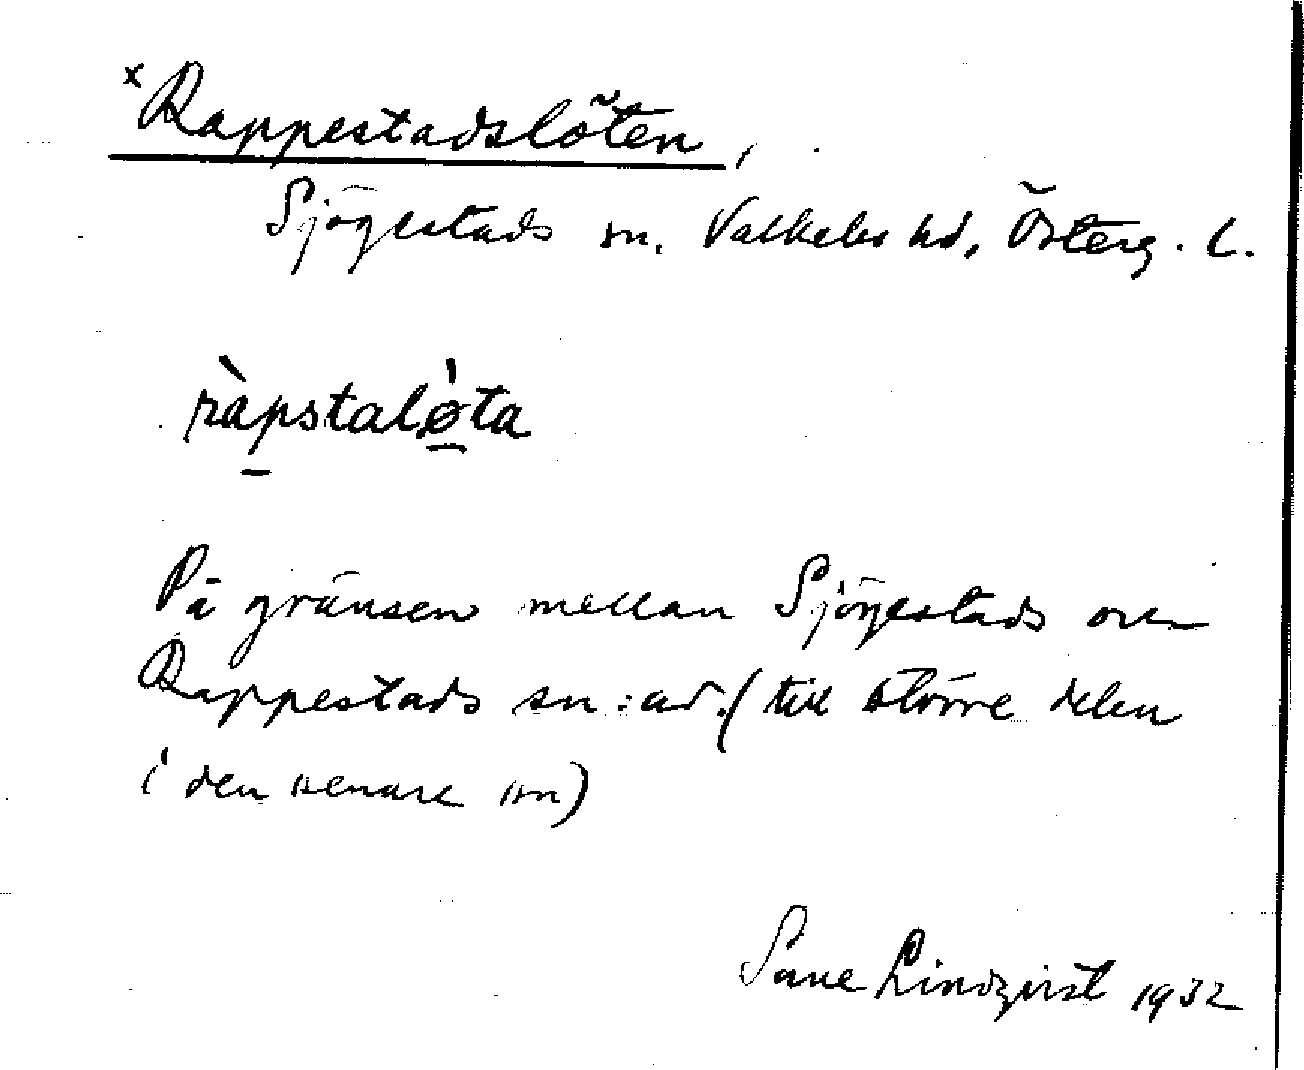 ×Rappestadslöten,
Sjögestads sn. Valkebo hd, Österg. l.
ràpstalø̀ta
På gränsen mellan Sjögestads och
Rappestads sn:ar. (till större delen
i den senare sn)
Sune Lindqvist 1932